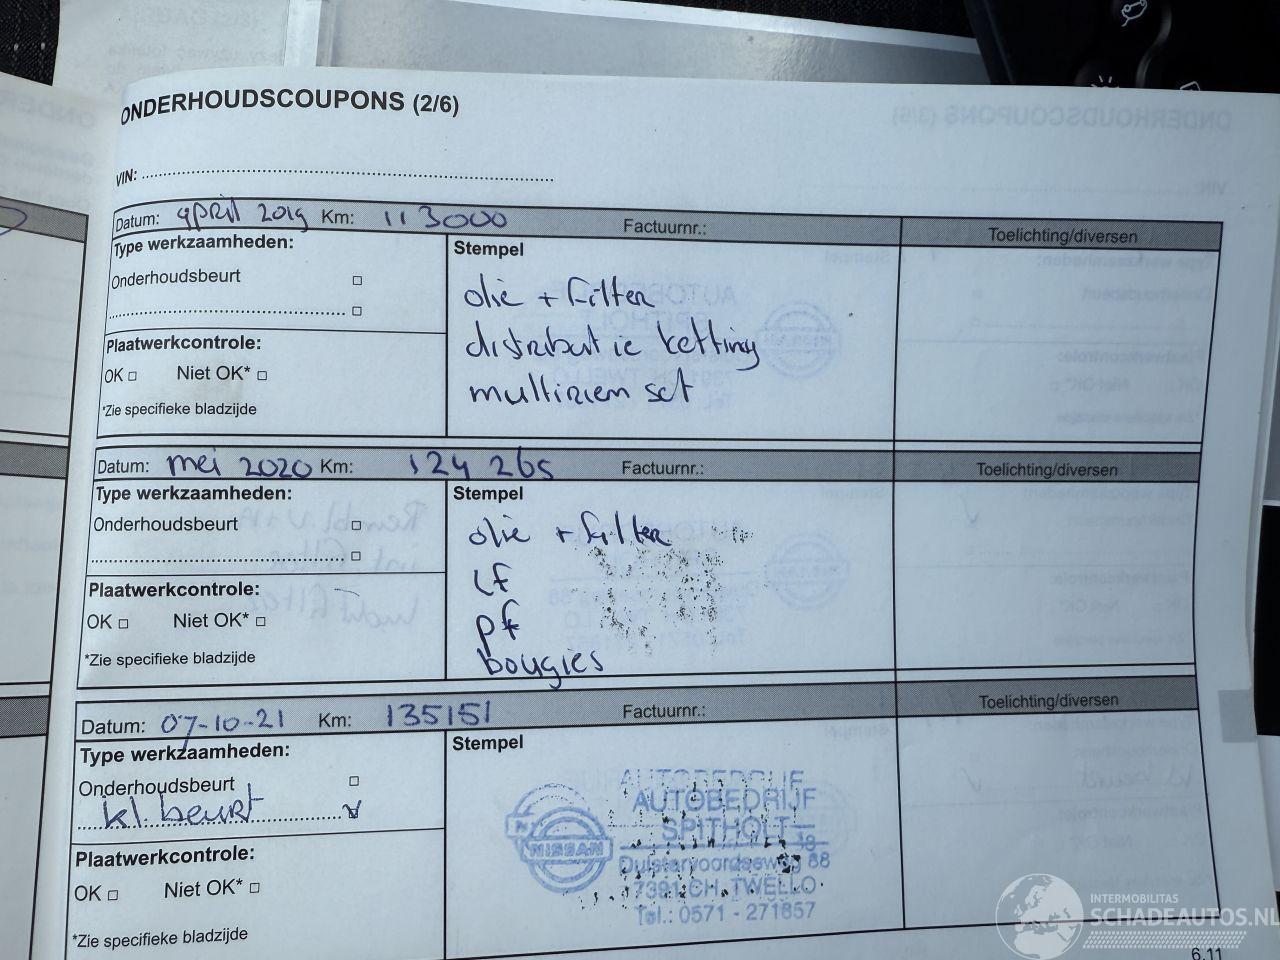 ONDERHOUDSCOUPONS (2/6)
VIN:
Datum: april 2019 Km: 113000 Factuurnr.: Toelichting/diversen
Type werkzaamheden:
Stempel
Onderhoudsbeurt
olie + filter
distributie ketting
multiriem set
Plaatwerkcontrole:
OK Niet OK*
*Zie specifieke bladzijde
Datum: mei 2020 Km: 124 265 Factuurnr.: Toelichting/diversen
Type werkzaamheden:
Stempel
Onderhoudsbeurt
olie + filter
Lf
pf
bougies
Plaatwerkcontrole:
OK Niet OK*
*Zie specifieke bladzijde
Datum: 07-10-21 Km: 135151 Factuurnr.: Toelichting/diversen
Type werkzaamheden:
Stempel
Onderhoudsbeurt
kl. beurt
AUTOBEDRIJF
SPITHOLT
NISSAN
Duistervoordseweg 88
7391 CH TWELLO
Tel.: 0571 - 271857
Plaatwerkcontrole:
OK Niet OK*
*Zie specifieke bladzijde
INTERMOBILITAS
SCHADEAUTOS.NL
6.11